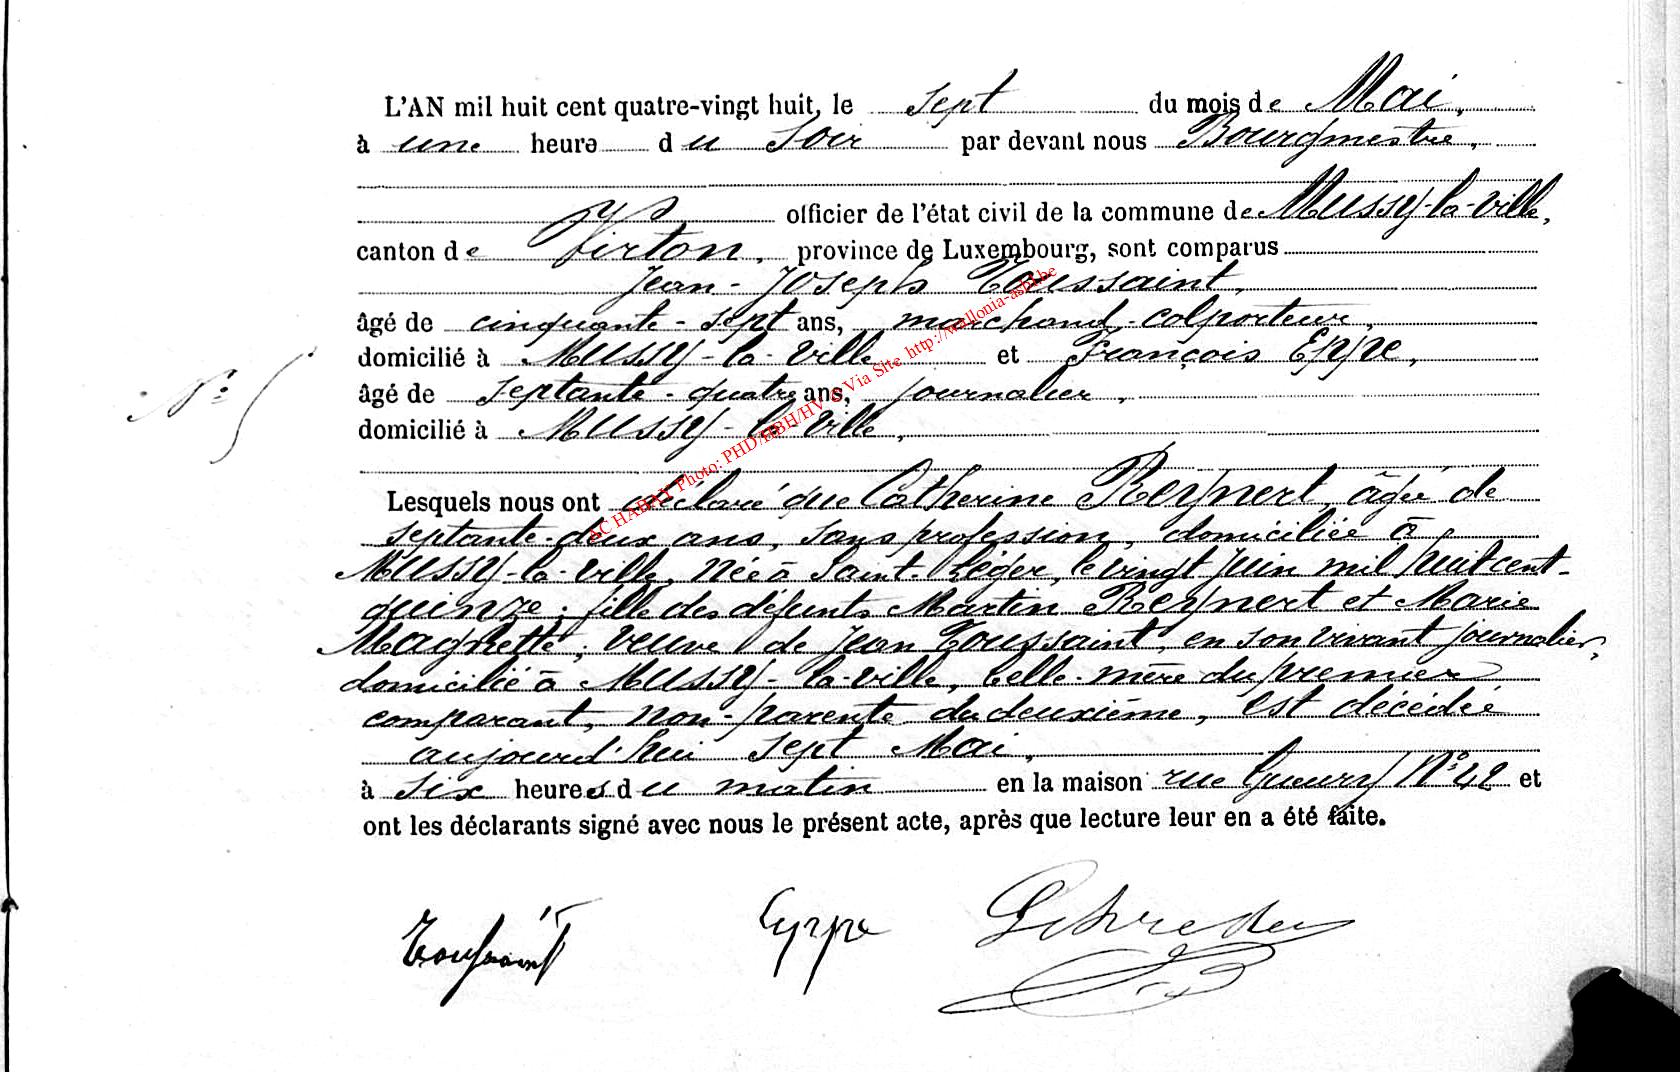 L'AN mil huit cent quatre-vingt huit, le sept du mois de Mai,
à une heure du Soir par devant nous Bourgmestre,
officier de l'état civil de la commune de Mussy-la-Ville,
canton de Virton, province de Luxembourg, sont comparus
Jean-Joseph Toussaint,
âgé de cinquante-sept ans, marchand-colporteur,
domicilié à Mussy-la-Ville et François Eppe,
N° 5
âgé de septante-quatre ans, journalier,
domicilié à Mussy-la-Ville,
Lesquels nous ont déclaré que Catherine Reynert, âgée de
septante-deux ans, sans profession, domiciliée à
Mussy-la-Ville, née à Saint-Léger, le vingt juin mil huit cent-
quinze; fille des défunts Martin Reynert et Marie
Magnette; veuve de Jean Toussaint, en son vivant journalier,
domicilié à Mussy-la-Ville, belle-mère du premier
comparant, non-parente du deuxième, est décédée
aujourd'hui sept Mai,
à six heures du matin en la maison rue Gueury N° 42 et
ont les déclarants signé avec nous le présent acte, après que lecture leur en a été faite.
Toussaint Eyppe
AC HABAY Photo: PHD/HBH/HV © Via Site http://wallonia-asbl.be